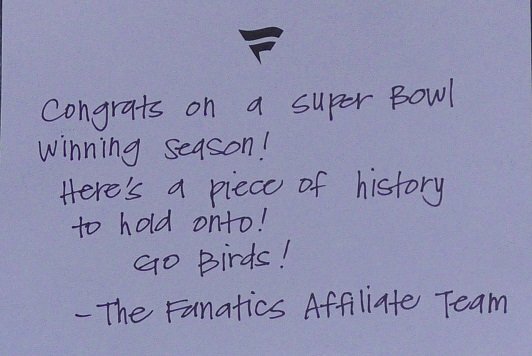 Congrats on a Super Bowl
Winning Season!
Here's a piece of history
to hold onto!
GO Birds!
- The Fanatics Affiliate Team